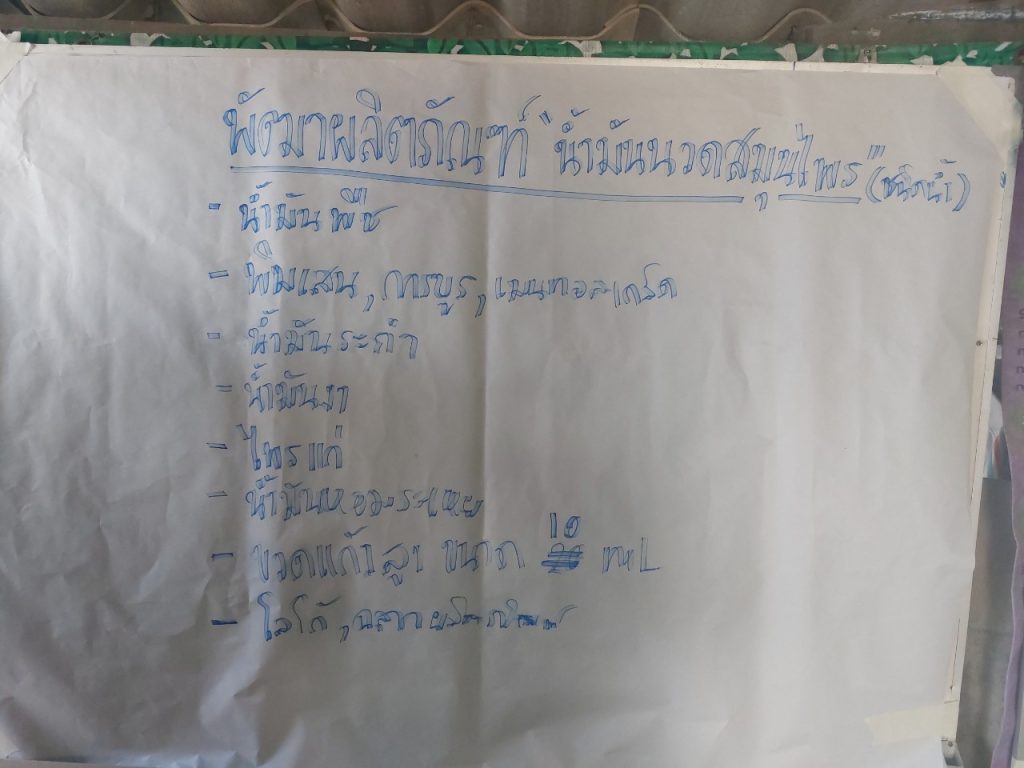 พัฒนาผลิตภัณฑ์ "น้ำมันนวดสมุนไพร" (ชนิดน้ำ)
- น้ำมันพืช
- พิมเสน, การบูร, เมนทอลเกร็ด
- น้ำมันระกำ
- น้ำมันงา
- ไพรแก่
- น้ำมันหอมระเหย
- ขวดแก้ว ขนาด 10 ml
- โลโก้, ฉลากผลิตภัณฑ์